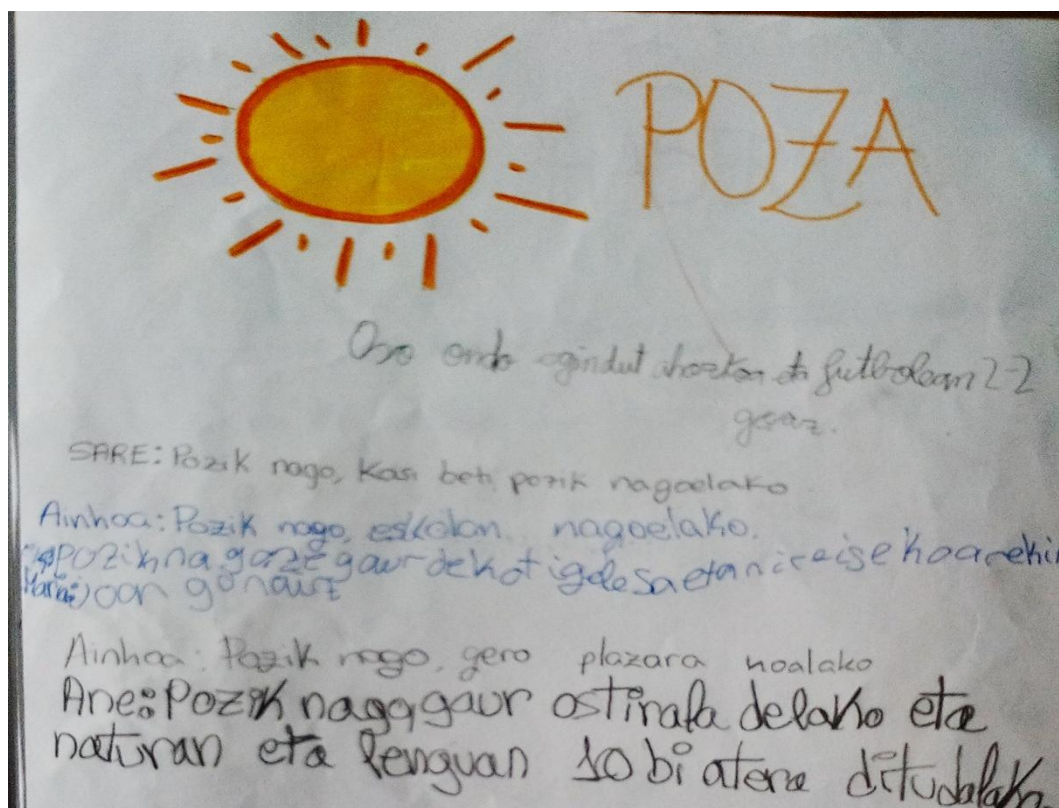 POZA
Oso ondo egindut eta futbolean 2-2
geraz.
SARE: Pozik nago, Kasi beti pozik nagoelako
Ainhoa: Pozik nago, eskolan nagoelako.
pozik gaur dekot
Maria: joan
Ainhoa: Pozik nago, gero plazara noalako
Ane: Pozik nago, gaur ostirala delako eta
naturan eta lenguan 10 bi atera ditudalako